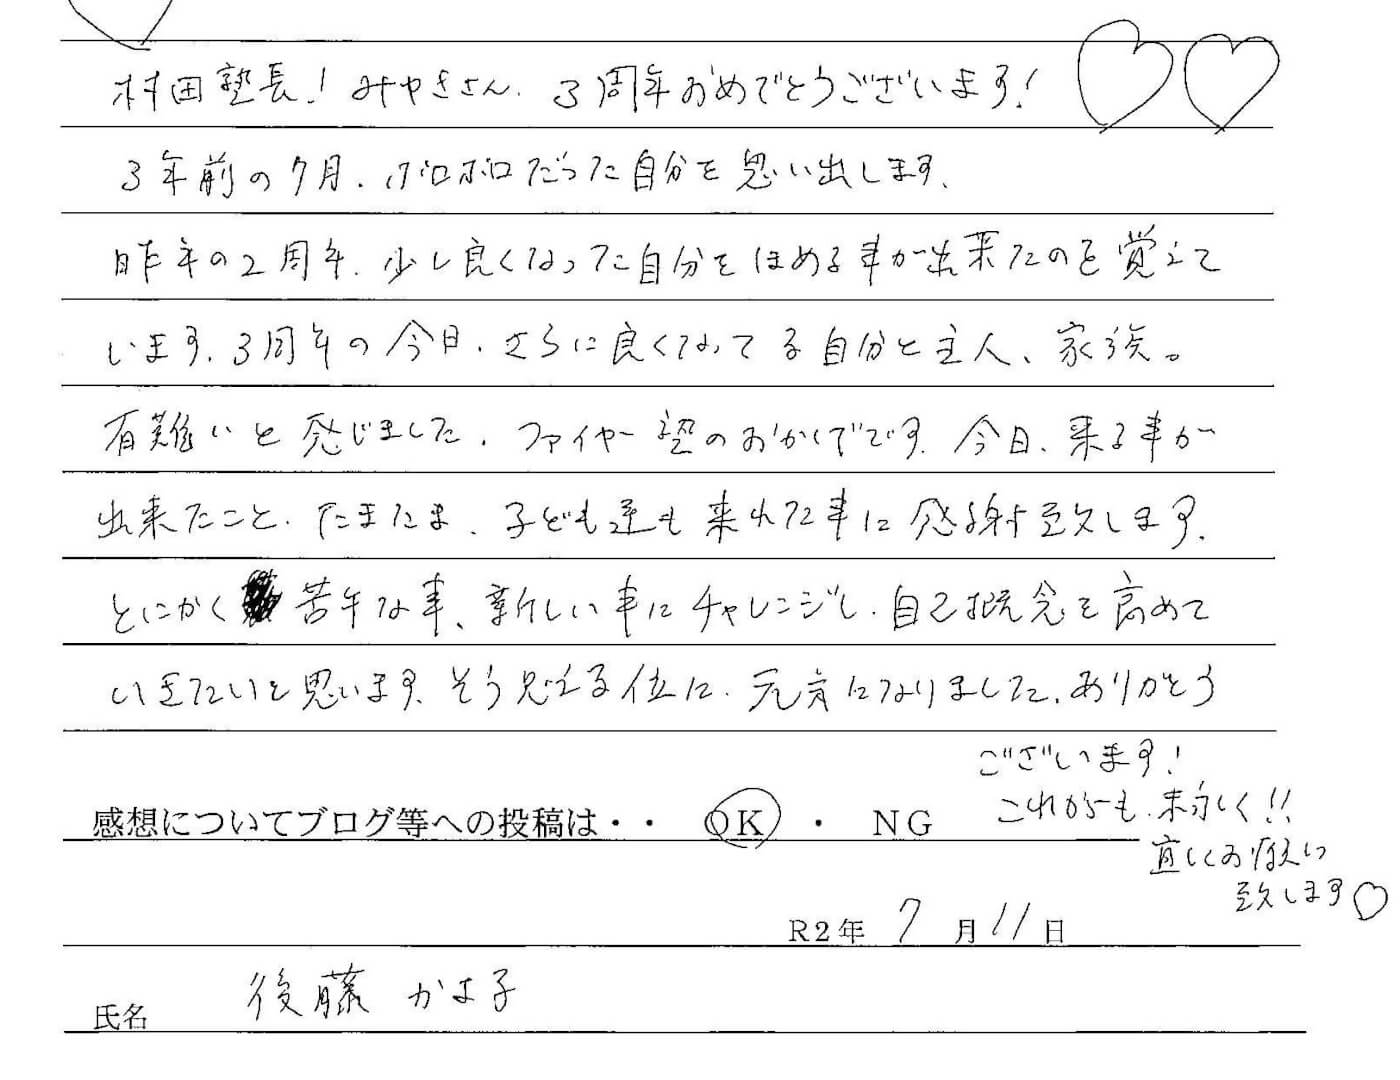 村田塾長!みゆきさん、3周年おめでとうございます!
3年前の7月、ボロボロだった自分を思い出します。
昨年の2周年、少し良くなった自分をほめる事が出来たのを覚えて
います。3周年の今日、さらに良くなってる自分と主人、家族。
有難いと感じました。ファイヤー塾のおかげです。今日、来る事が
出来たこと、たまたま、子ども達も来れた事に感謝致します。
とにかく 苦手な事、新しい事にチャレンジし、自己概念を高めて
いきたいと思います。そう思える位に、元気になりました。ありがとう
ございます!
これからも、末永く!!
宜しくお願い
致します
感想についてブログ等への投稿は・・ OK ・ NG
R2年 7月11日
氏名 後藤 かよ子